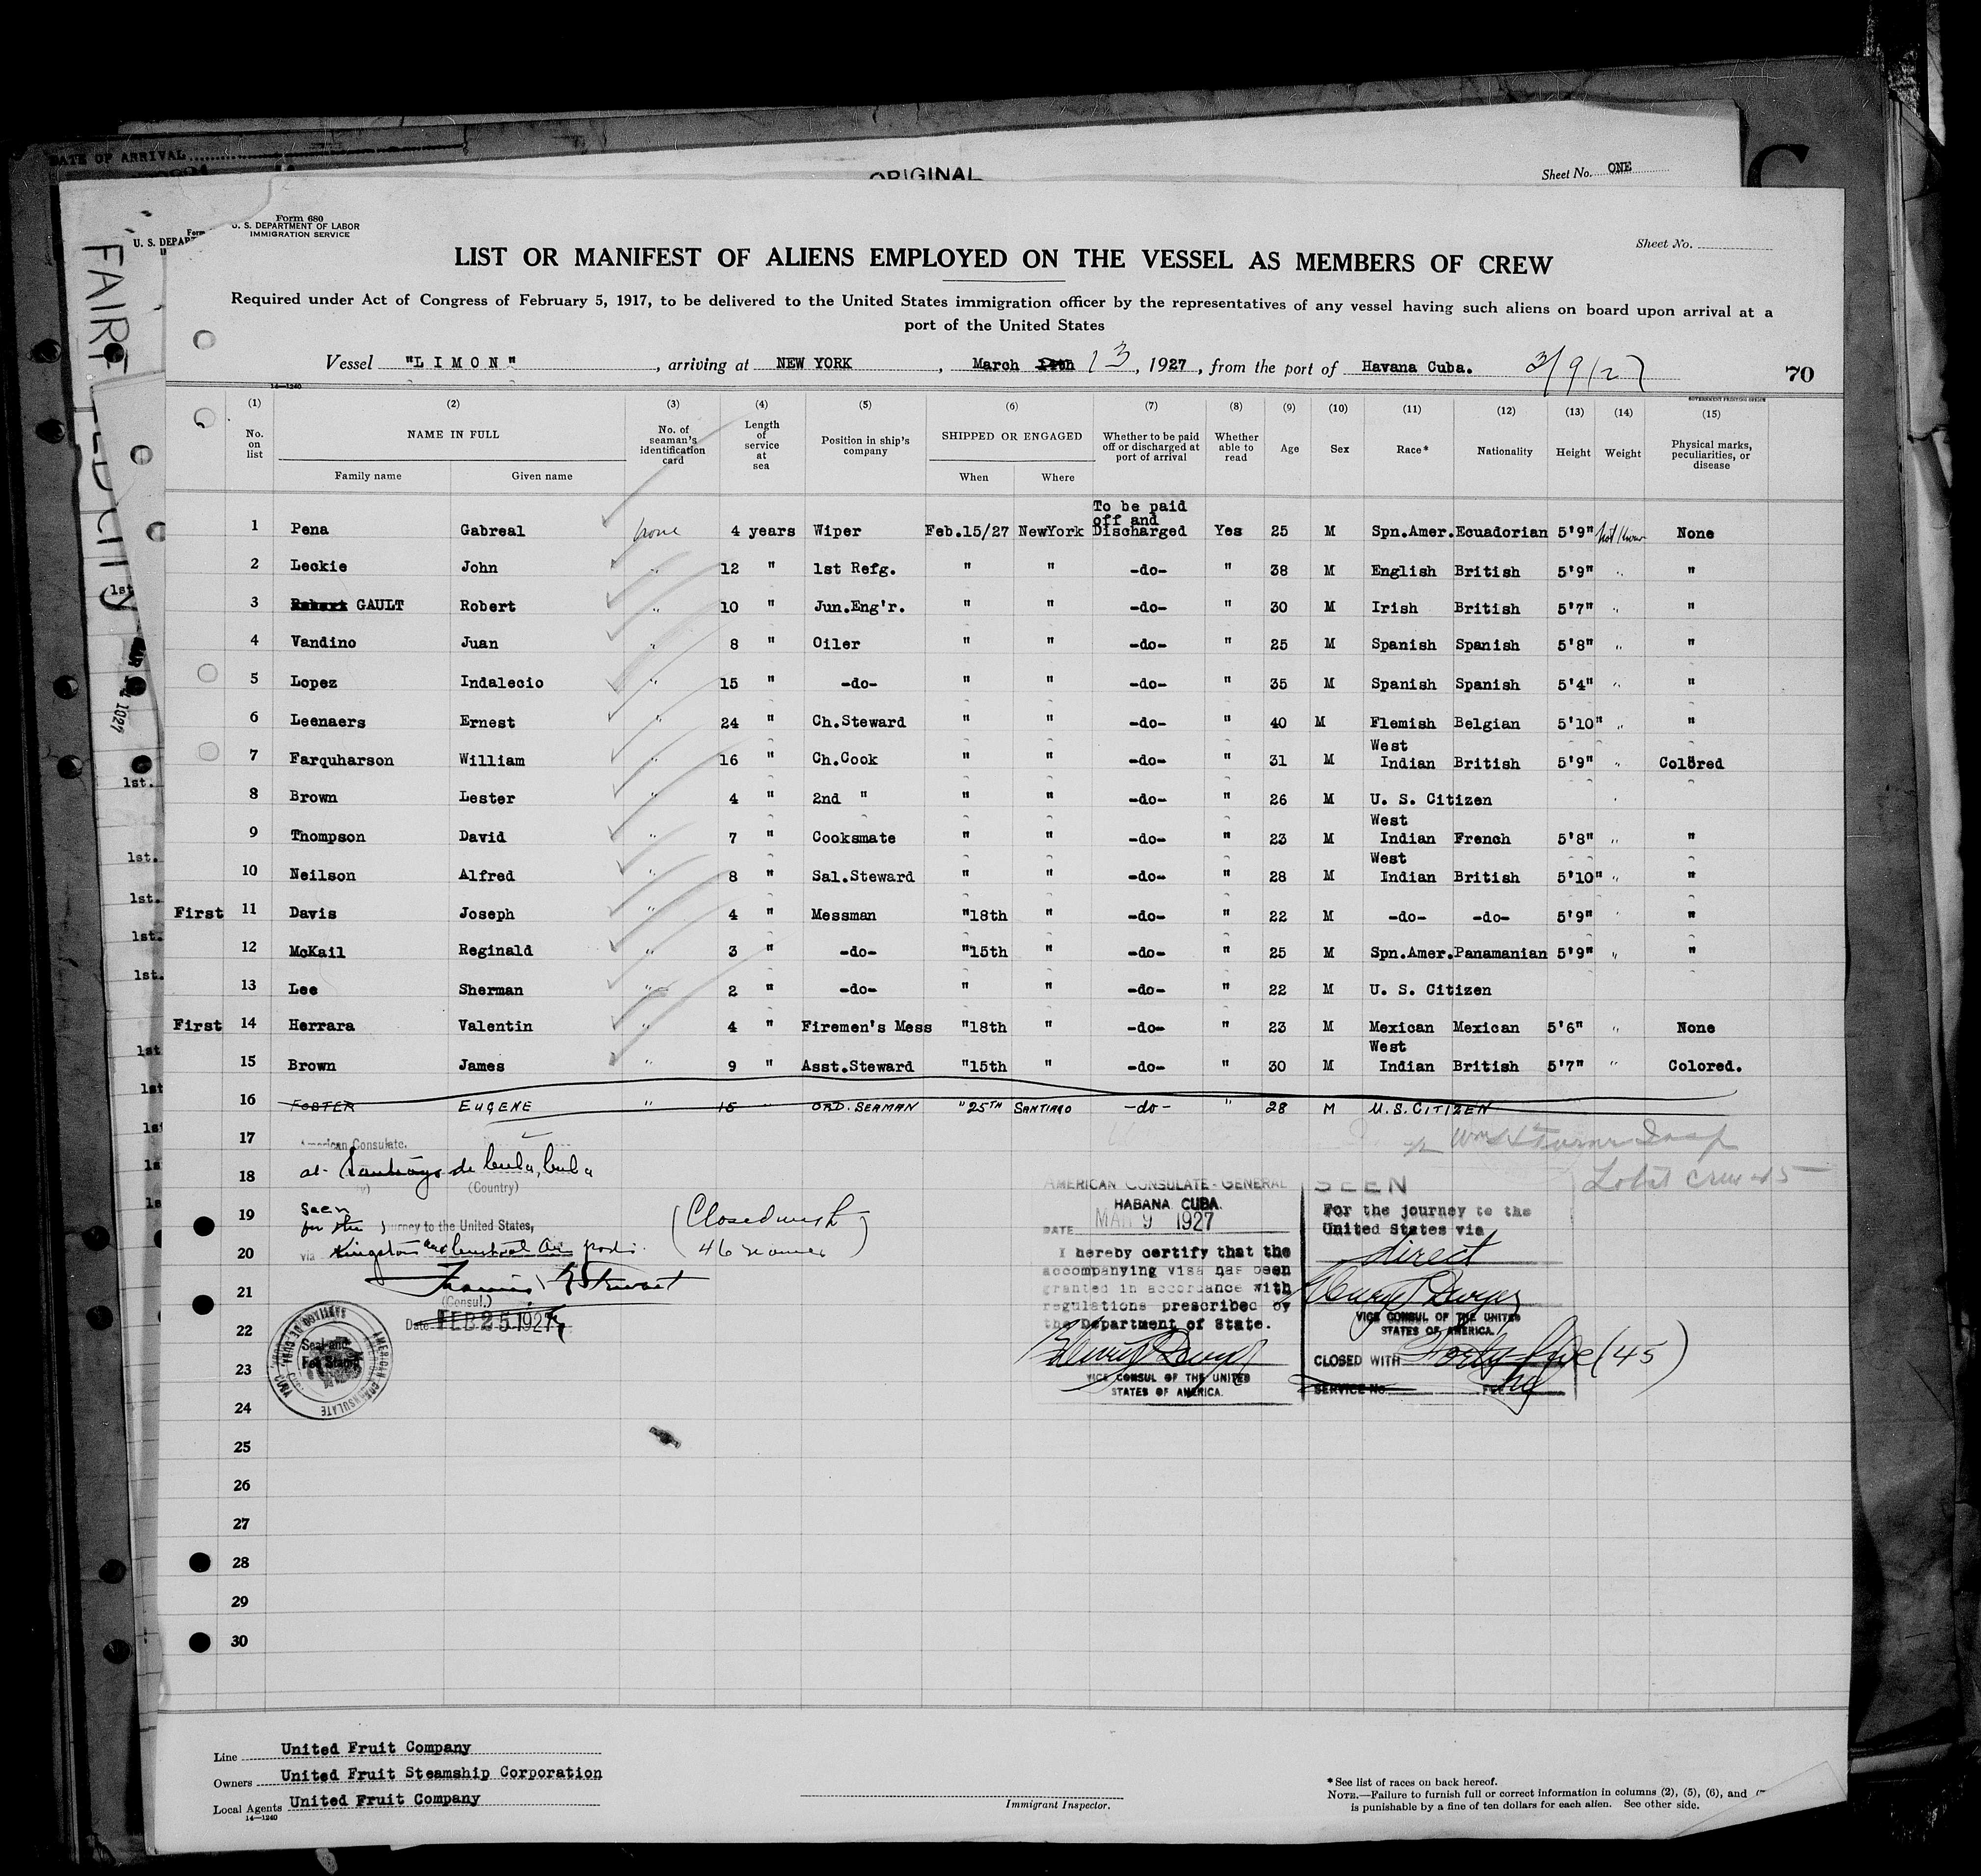 DATE OF ARRIVAL
ORIGINAL
Sheet No. ONE
Form 680
U. S. DEPARTMENT OF LABOR
IMMIGRATION SERVICE
Sheet No.
LIST OR MANIFEST OF ALIENS EMPLOYED ON THE VESSEL AS MEMBERS OF CREW
Required under Act of Congress of February 5, 1917, to be delivered to the United States immigration officer by the representatives of any vessel having such aliens on board upon arrival at a
port of the United States
Vessel "LIMON", arriving at NEW YORK, March 13, 1927, from the port of Havana Cuba. 3/9/27
70
14-1240
GOVERNMENT PRINTING OFFICE
(1) (2) (3) (4) (5) (6) (7) (8) (9) (10) (11) (12) (13) (14) (15)
No. on list NAME IN FULL No. of seaman's identification card Length of service at sea Position in ship's company SHIPPED OR ENGAGED Whether to be paid off or discharged at port of arrival Whether able to read Age Sex Race* Nationality Height Weight Physical marks, peculiarities, or disease
Family name Given name When Where
1 Pena Gabreal none 4 years Wiper Feb.15/27 NewYork To be paid off and Discharged Yes 25 M Spn.Amer. Ecuadorian 5'9" None
2 Leckie John " 12 " 1st Refg. " " -do- " 38 M English British 5'9" " "
3 GAULT Robert " 10 " Jun.Eng'r. " " -do- " 30 M Irish British 5'7" " "
4 Vandino Juan " 8 " Oiler " " -do- " 25 M Spanish Spanish 5'8" " "
5 Lopez Indalecio " 15 " -do- " " -do- " 35 M Spanish Spanish 5'4" " "
6 Leenaers Ernest " 24 " Ch.Steward " " -do- " 40 M Flemish Belgian 5'10" " "
7 Farquharson William " 16 " Ch.Cook " " -do- " 31 M West Indian British 5'9" " Colored
8 Brown Lester " 4 " 2nd " " " -do- " 26 M U. S. Citizen
9 Thompson David " 7 " Cooksmate " " -do- " 23 M West Indian French 5'8" " "
10 Neilson Alfred " 8 " Sal.Steward " " -do- " 28 M West Indian British 5'10" " "
First 11 Davis Joseph " 4 " Messman "18th " -do- " 22 M -do- -do- 5'9" " "
12 McKail Reginald " 3 " -do- "15th " -do- " 25 M Spn.Amer. Panamanian 5'9" " "
13 Lee Sherman " 2 " -do- " " -do- " 22 M U. S. Citizen
First 14 Herrara Valentin " 4 " Firemen's Mess "18th " -do- " 23 M Mexican Mexican 5'6" " None
15 Brown James " 9 " Asst.Steward "15th " -do- " 30 M West Indian British 5'7" " Colored.
16 FOSTER EUGENE " 15 " ORD. SEAMAN "25TH SANTIAGO -do- " 28 M U.S. CITIZEN
17
American Consulate.
18
at Santiago de Cuba, Cuba
(Country)
Total crew 45
19
Seen
for the journey to the United States,
20
via Kingston and Central Am ports.
(Closed with
46 names)
21
(Consul.)
22
Date FEB 25 1927
23
24
AMERICAN CONSULATE
SANTIAGO DE CUBA, CUBA
Seal and
Fee Stamp
AMERICAN CONSULATE-GENERAL
HABANA CUBA.
DATE MAR 9 1927
I hereby certify that the
accompanying visa has been
granted in accordance with
regulations prescribed by
the Department of State.
VICE CONSUL OF THE UNITED
STATES OF AMERICA.
SEEN
For the journey to the
United States via
direct
VICE CONSUL OF THE UNITED
STATES OF AMERICA.
CLOSED WITH Forty-five (45)
SERVICE No. FEE
25
26
27
28
29
30
Line United Fruit Company
Owners United Fruit Steamship Corporation
Local Agents United Fruit Company
14-1240
Immigrant Inspector.
*See list of races on back hereof.
NOTE.—Failure to furnish full or correct information in columns (2), (5), (6), and
is punishable by a fine of ten dollars for each alien. See other side.